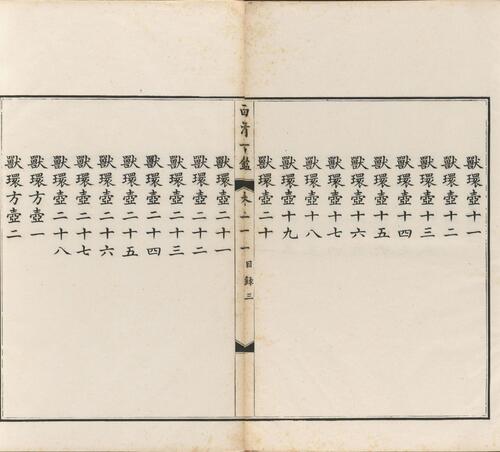 獸環壺十一
獸環壺十二
獸環壺十三
獸環壺十四
獸環壺十五
獸環壺十六
獸環壺十七
獸環壺十八
獸環壺十九
獸環壺二十
目錄三
獸環壺二十一
獸環壺二十二
獸環壺二十三
獸環壺二十四
獸環壺二十五
獸環壺二十六
獸環壺二十七
獸環壺二十八
獸環方壺一
獸環方壺二